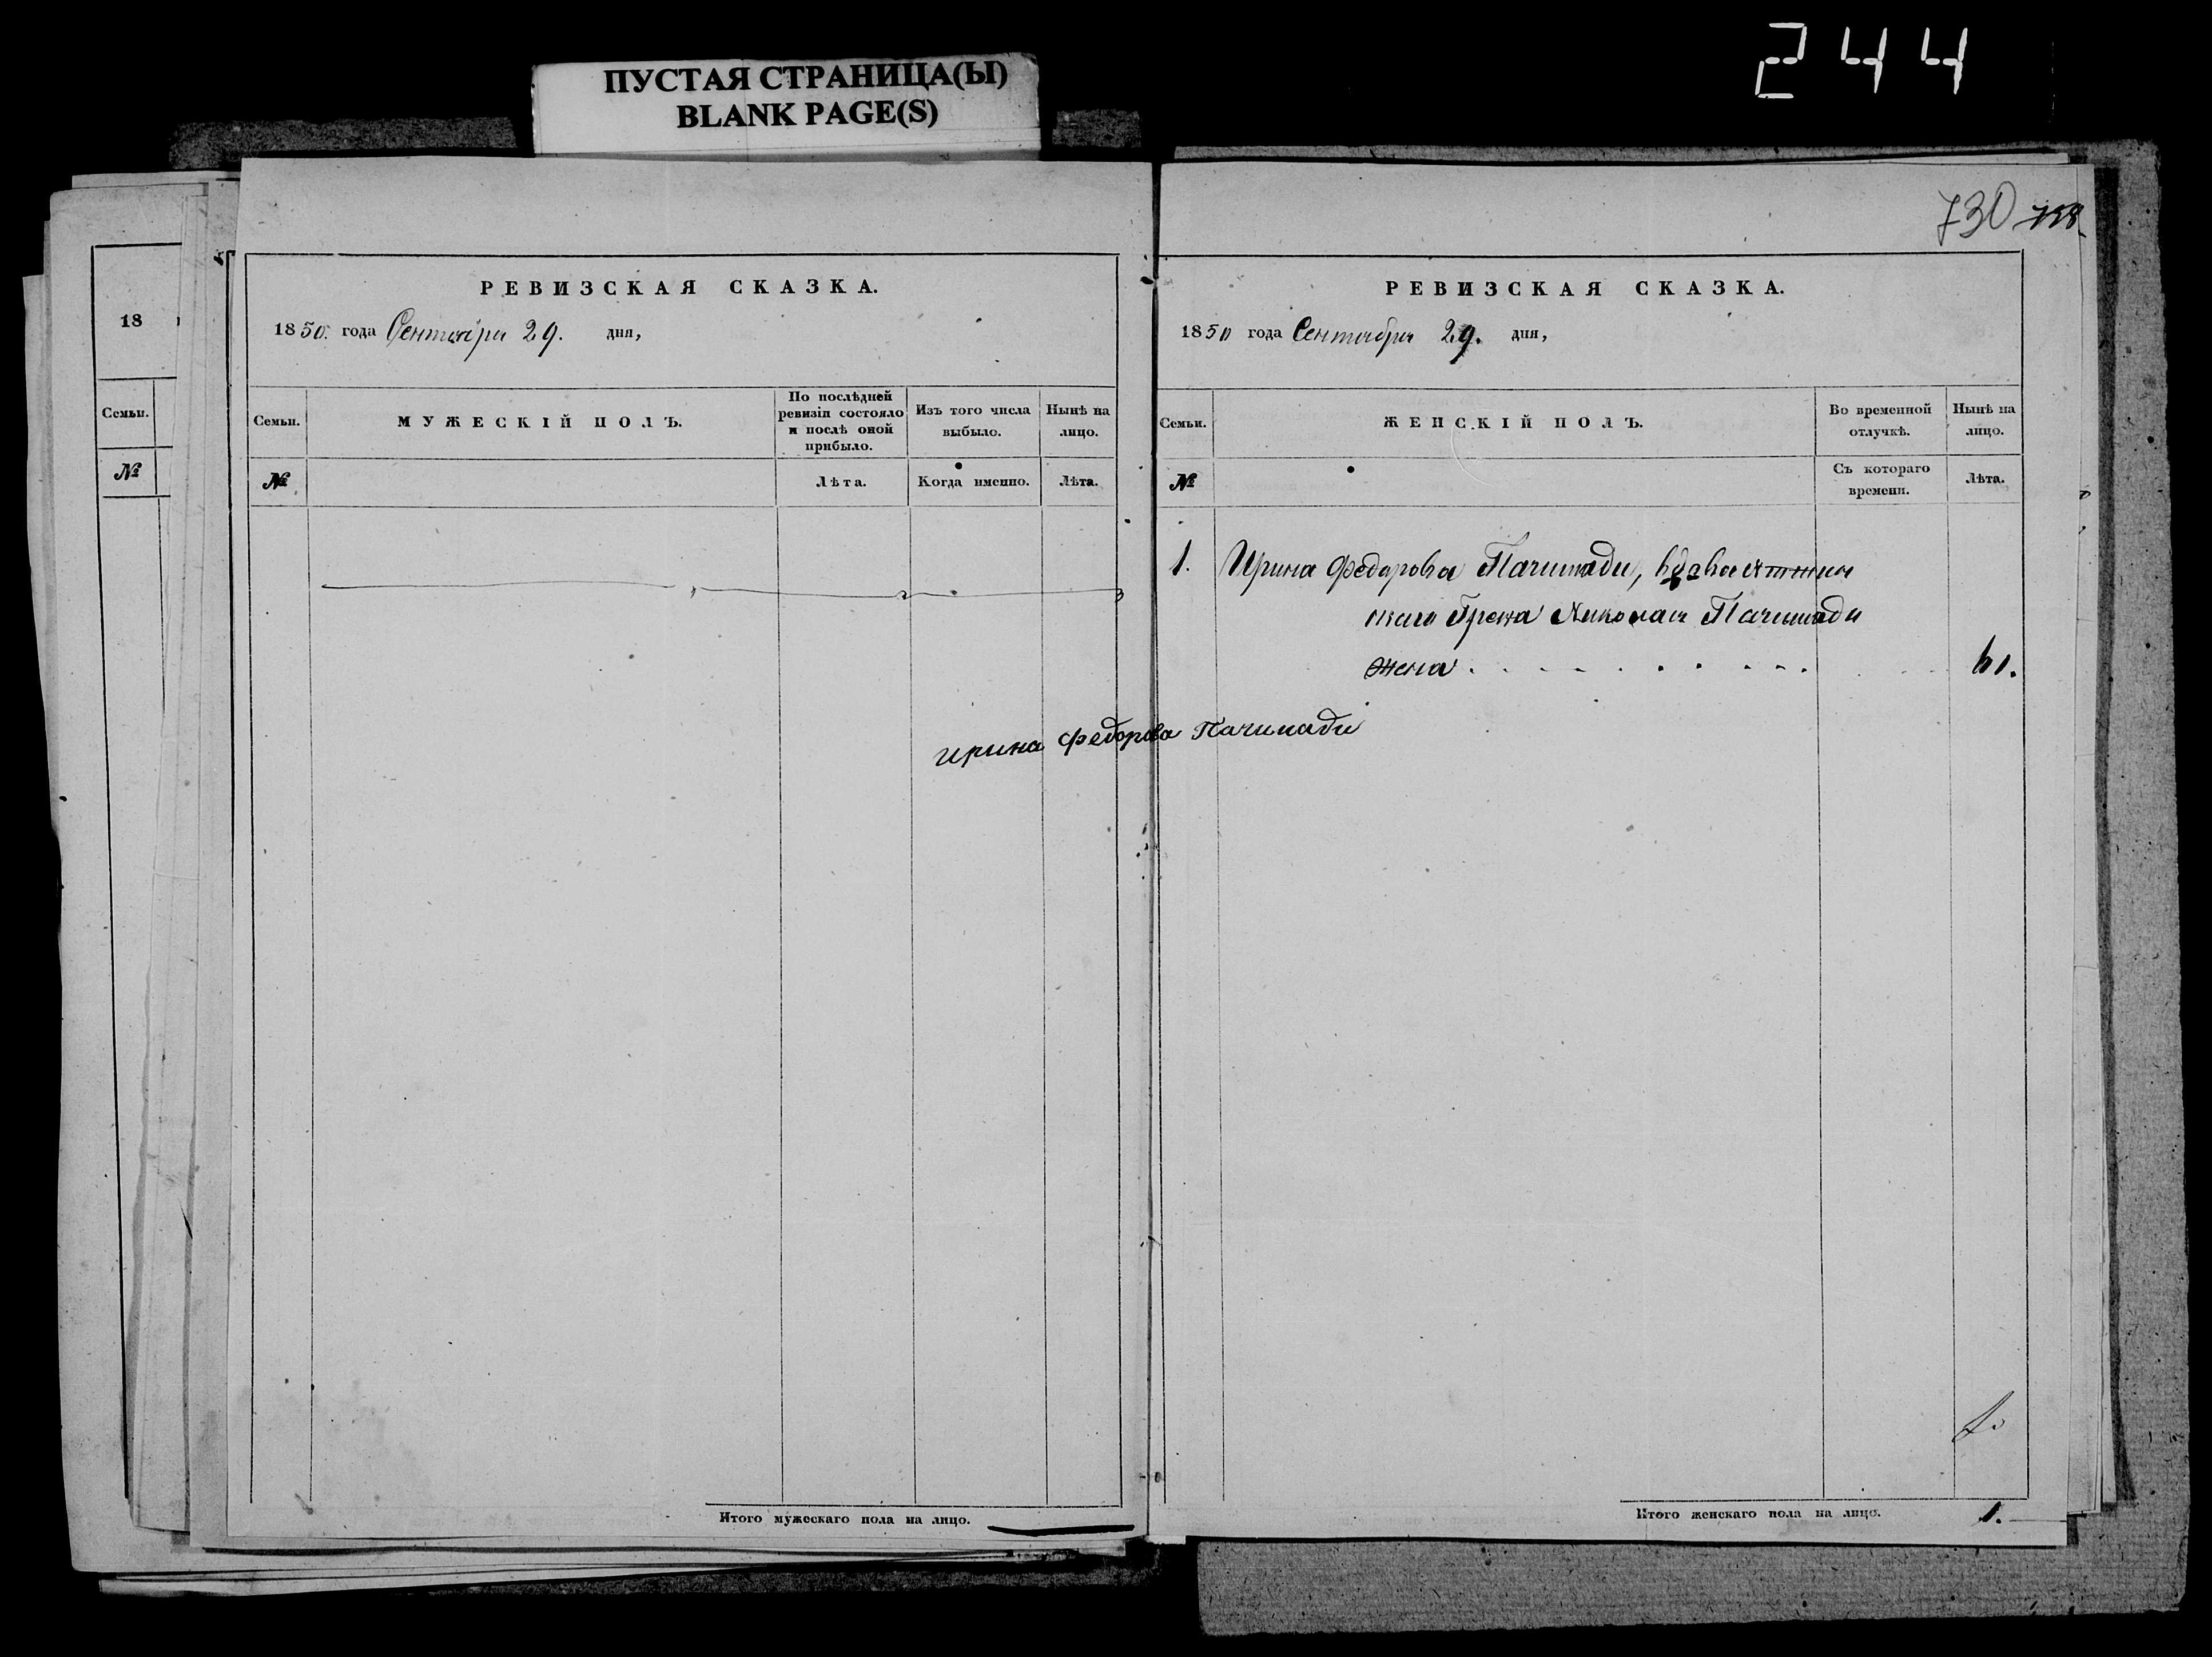 244
ПУСТАЯ СТРАНИЦА(Ы)
BLANK PAGE(S)
18
Семьи.
№
РЕВИЗСКАЯ СКАЗКА.
1850. года Сентября 29. дня,
Семьи.
МУЖЕСКІЙ ПОЛЪ.
По послѣдней ревизіи состояло и послѣ оной прибыло.
Изъ того числа выбыло.
Нынѣ на лицо.
№
Лѣта.
Когда именно.
Лѣта.
Итого мужескаго пола на лицо.
730
РЕВИЗСКАЯ СКАЗКА.
1850 года Сентября 29. дня,
Семьи.
ЖЕНСКІЙ ПОЛЪ.
Во временной отлучкѣ.
Нынѣ на лицо.
№
Съ котораго времени.
Лѣта.
1. Ирина Федорова Пачимади, вдова
Грека Николая Пачимади
жена . . . . . . . . . . 61.
ирина Федорова Пачимади
1.
Итого женскаго пола на лицо. 1.